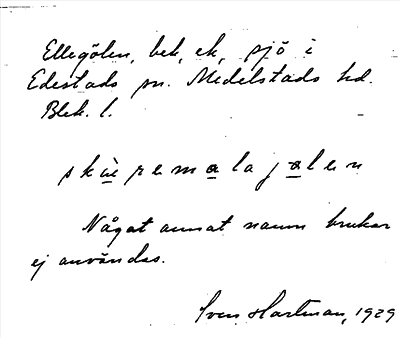 Ellegölen, bek, ek, sjö i
Edestads sn. Medelstads hd.
Blek. l.
skæremala jølen
Något annat namn brukar
ej användas.
Sven Hartman, 1929